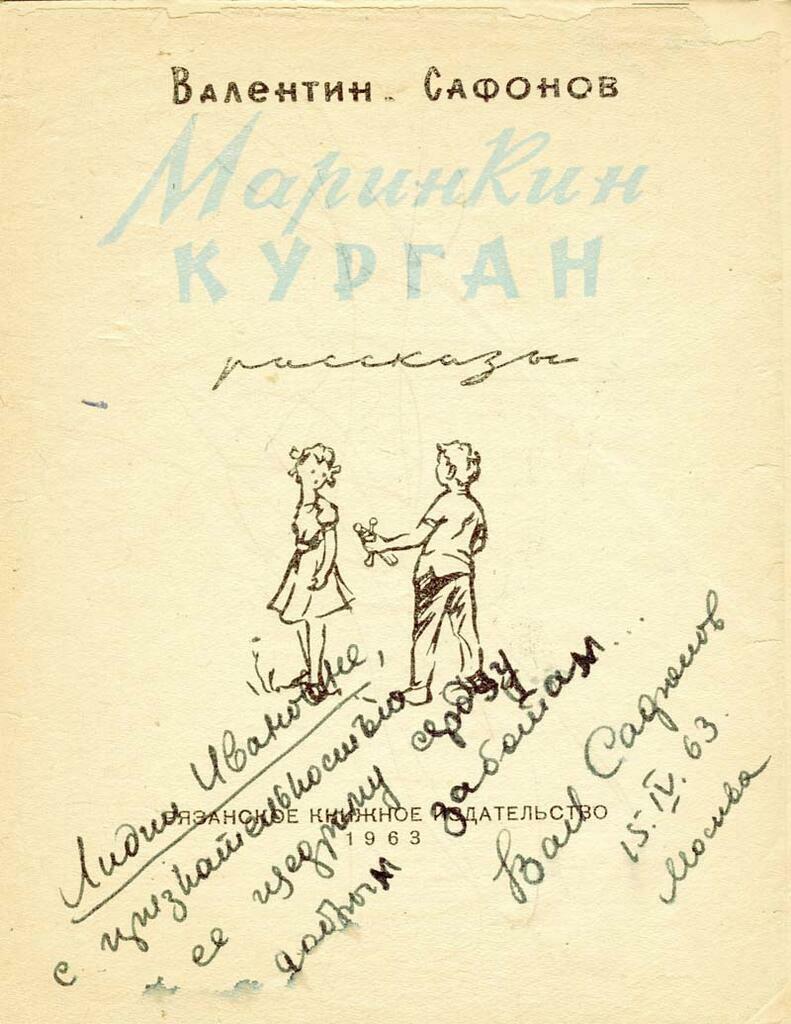 Валентин Сафонов
Маринкин
КУРГАН
рассказы
РЯЗАНСКОЕ КНИЖНОЕ ИЗДАТЕЛЬСТВО
1963
Лидии Ивановне,
с признательностью
ее щедрому сердцу
добрым заботам...
Вал Сафонов
15.IV.63
Москва